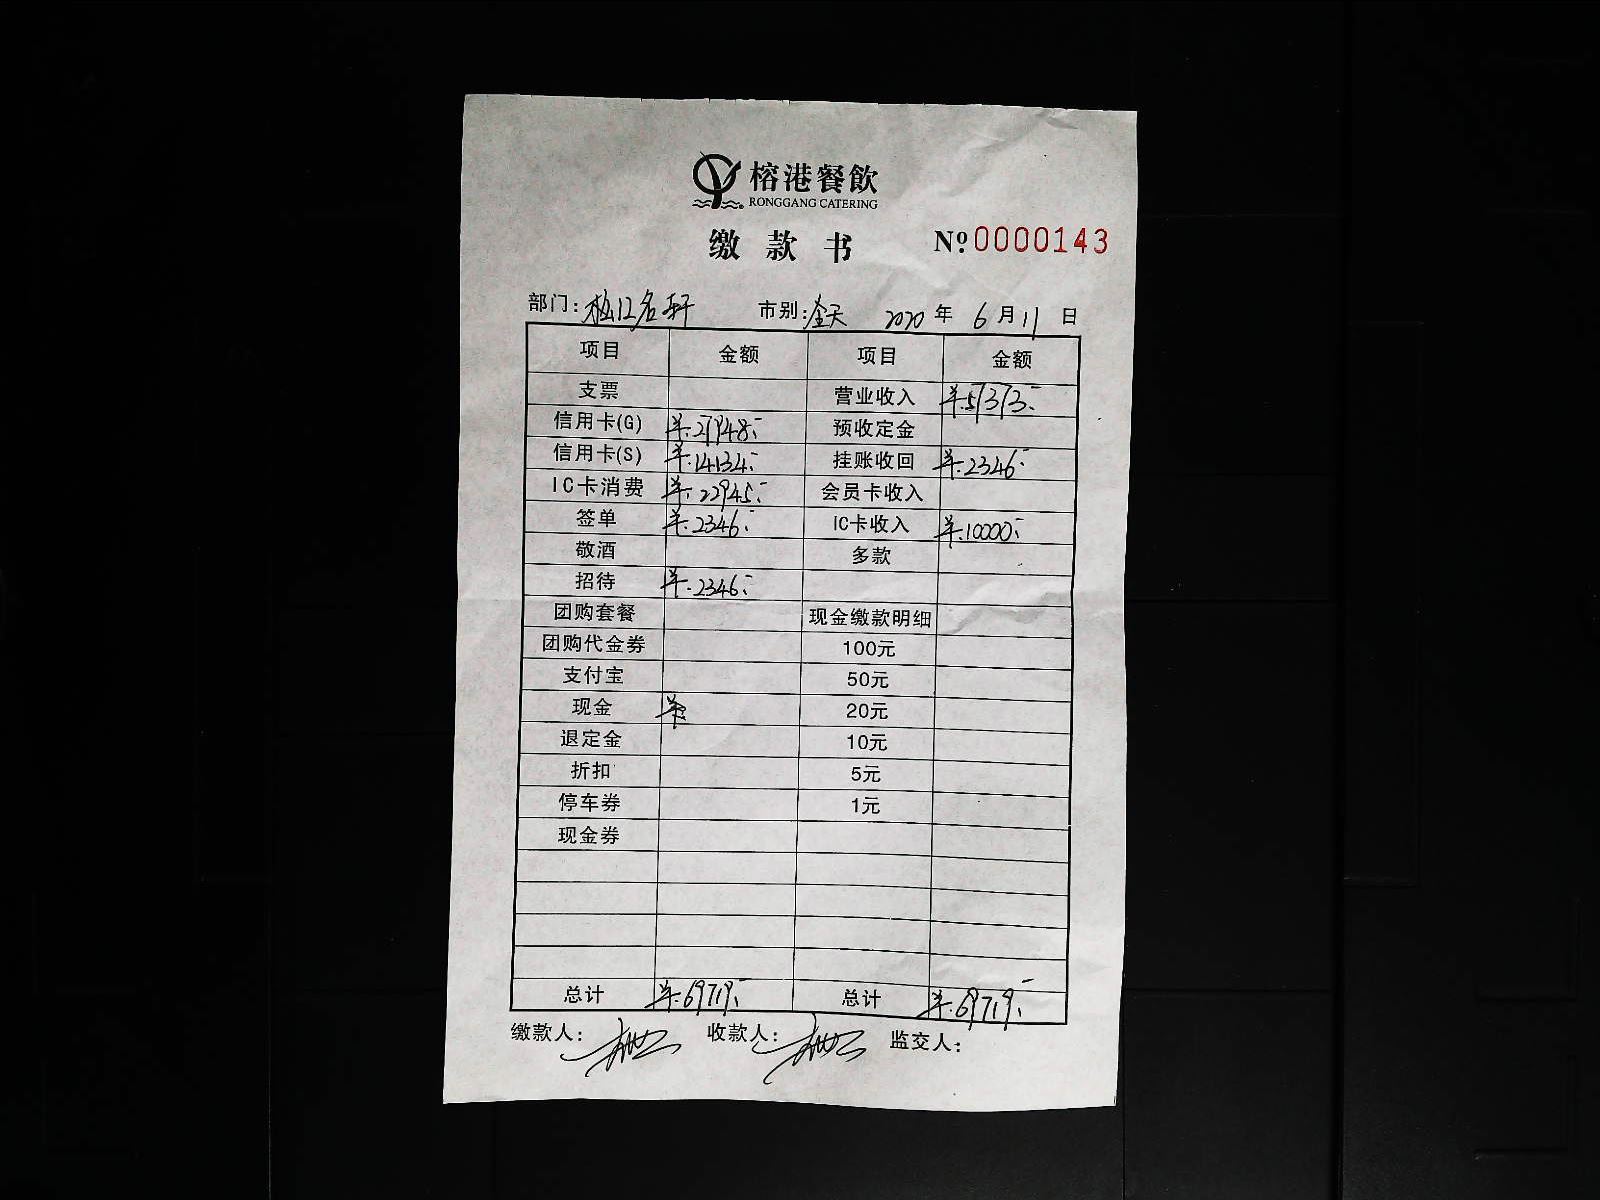 榕港餐飲
RONGGANG CATERING
缴款书 №0000143
部门:松江名轩 市别:全天 2020年6月11日
项目 金额 项目 金额
支票 营业收入 ¥.57373.-
信用卡(G) ¥.27948.- 预收定金
信用卡(S) ¥.14134.- 挂账收回 ¥.2346.-
IC卡消费 ¥.22945.- 会员卡收入
签单 ¥.2346.- IC卡收入 ¥.10000.-
敬酒 多款
招待 ¥.2346.-
团购套餐 现金缴款明细
团购代金券 100元
支付宝 50元
现金 ¥ 20元
退定金 10元
折扣 5元
停车券 1元
现金券
总计 ¥.69719.- 总计 ¥.69719.-
缴款人: 收款人: 监交人: